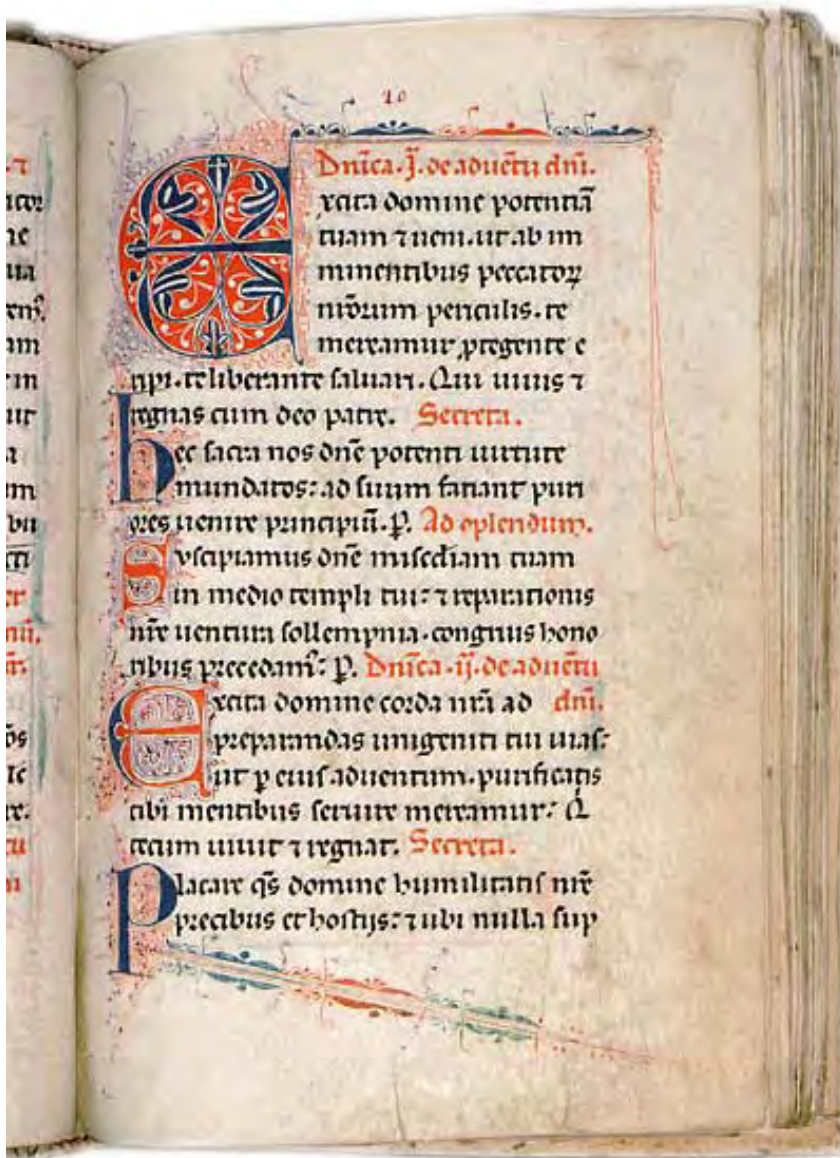 20
Dn̄ica·j̄·de aduētu dn̄i.
Excita domine potentiā
tuam ⁊ ueni·ut ab im
minentibus peccatoꝝ
nr̄orum periculis·te
mereamur ꝓtegente e
ripi·te liberante saluari. Qui uiuis ⁊
regnas cum deo patre. Secreta.
hec sacra nos dn̄e potenti uirtute
mundatos: ad suum faciant puri
ores uenire principiū. P. Ad cplendum.
Suscipiamus dn̄e mis̄cdiam tuam
in medio templi tui: ⁊ reparationis
nr̄e uentura sollempnia·congruis hono
ribus precedam᷒: P. Dn̄ica·ij·de aduētu
Excita domine corda nr̄a ad dn̄i.
preparandas unigeniti tui uias:
ut ꝑ eius aduentum·purificatis
tibi mentibus seruire mereamur: Q
tecum uiuit ⁊ regnat. Secreta.
Placare qs̄ domine humilitatis nr̄e
precibus et hostijs: ⁊ ubi nulla sup